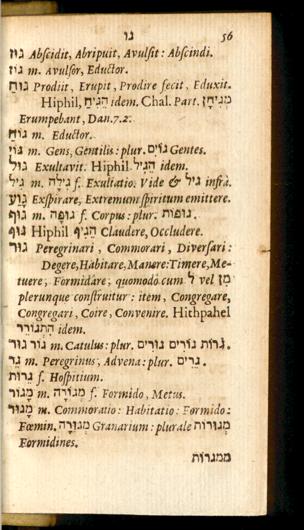 גו 56
גוז Abscidit, Abripuit, Avulsit: Abscindi.
גוז m. Avulsor, Eductor.
גוח Prodiit, Erupit, Prodire fecit, Eduxit.
Hiphil, הגיח idem. Chal. Part. מגיחן
Erumpebant, Dan.7.2.
גוח m. Eductor.
גוי m. Gens, Gentilis: plur. גוים Gentes.
גול Exultavit. Hiphil הגיל idem.
גיל m. גילה f. Exultatio. Vide & גיל infrà.
גוע Exspirare, Extremum spiritum emittere.
גוף m. גופה f. Corpus: plur. גופות.
גוף Hiphil הגיף Claudere, Occludere.
גור Peregrinari, Commorari, Diversari:
Degere, Habitare, Manere: Timere, Me-
tuere, Formidare; quomodo cum ל vel מן
plerunque construitur: item, Congregare,
Congregari, Coire, Convenire. Hithpahel
התגורר idem.
גור גור m. Catulus: plur. גורים גורים גרות.
גר m. Peregrinus, Advena: plur. גרים.
גרות f. Hospitium.
מגור m. מגורה f. Formido, Metus.
מגור m. Commoratio: Habitatio: Formido:
Fœmin. מגורה Granarium: plurale מגורות
Formidines.
ממגרות